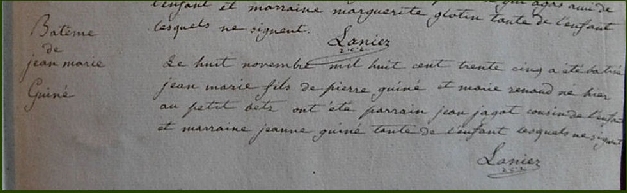 l'enfant et marraine marguerite giotin tante de l'enfant
lesquels ne signent.
Lanier
Batême
de
jean marie
Guiné
Le huit novembre mil huit cent trente cinq a été batisé
jean marie fils de pierre guiné et marie renaud né hier
au petit betz ont été parrain jean jagot cousin de l'enfant
et marraine jeanne guiné tante de l'enfant lesquels ne signent
Lanier